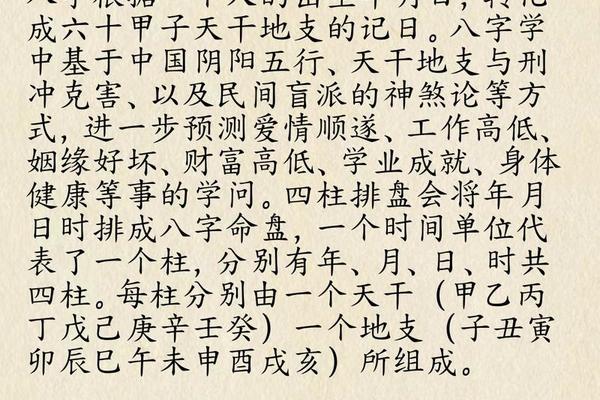 成六十甲子天干地支的记日。八字学
中基于中国阴阳五行、天干地支与刑
冲克害、以及民间盲派的神煞论等方
式，进一步预测爱情顺遂、工作高低、
姻缘好坏、财富高低、学业成就、身体
健康等事的学问。四柱排盘会将年月
日时排成八字命盘，一个时间单位代
表了一个柱，分别有年、月、日、时共
四柱。每柱分别由一个天干（甲乙丙
丁戊己庚辛壬癸）一个地支（子丑寅
卯辰巳午未申酉戌亥）所组成。